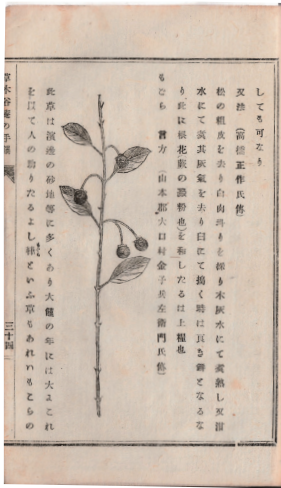 しても可なり
又法 (高橋正作氏傳)
松の粗皮を去り白肉 りを採り木灰水にて煮熟し又清
水にて煮其灰氣を去り臼にて搗く時は眞き餅となるな
り此に根花(蕨の澱粉也)を和したるは上糧也
もむら 言方 (山本郡大口村金子兵左衛門氏傳)
此草は濱邊の砂地等に多くあり大饑の年には大よこれ
を以て人の助りたるよし といふ草もあれいもこらの
草木谷庵の手 
三十四